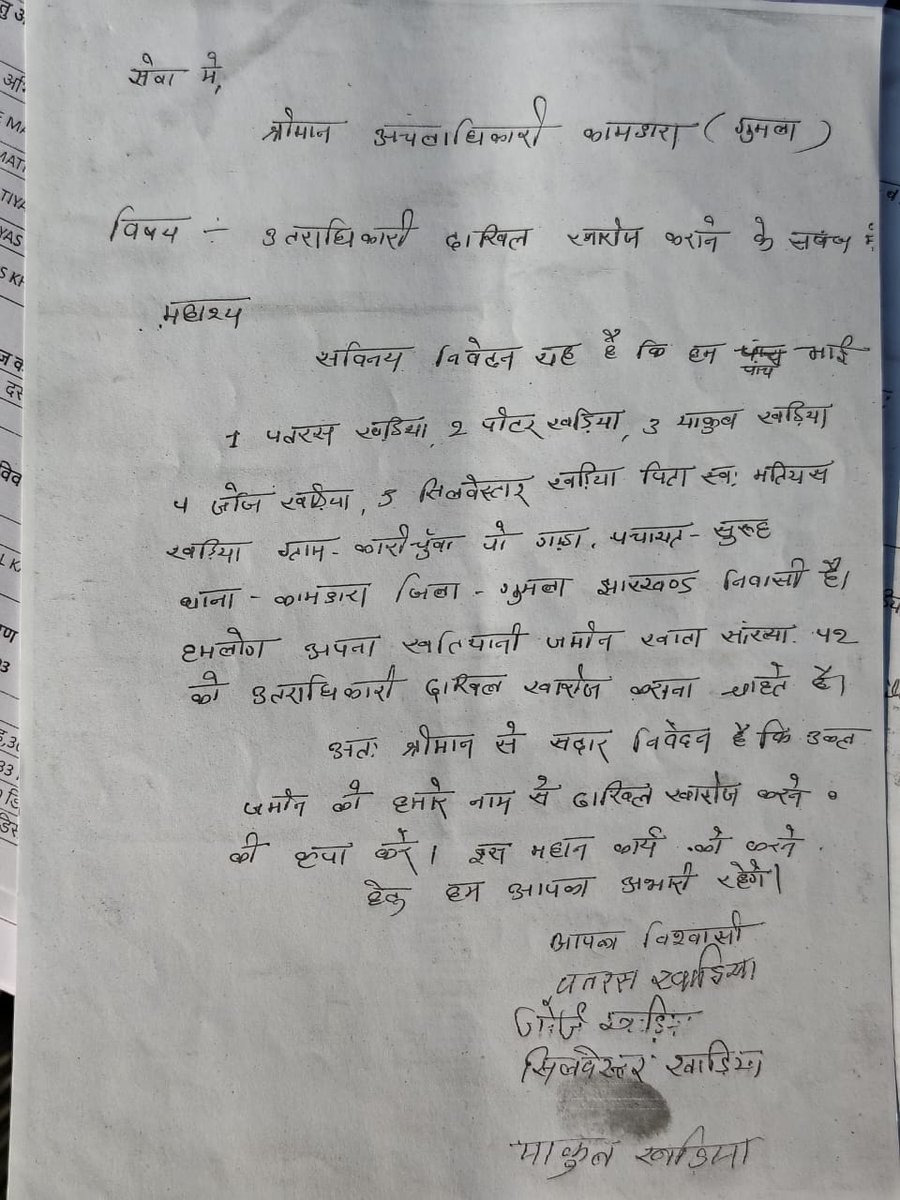 सेवा मे,
श्रीमान अंचलाधिकारी कामडारा ( गुमला )
विषय :- उतराधिकारी दाखिल खारीज कराने के सबंध में
महाश्य
सविनय निवेदन यह है कि हम भाई
पांच
1 पतरस खड़िया, 2 पीटर खड़िया, 3 याकुब खड़िया
4 जोर्ज खड़िया, 5 सिलवेस्तार खड़िया पिता स्व: मतियस
खड़िया ग्राम - कारीचुँवा पो गाड़ा, पंचायत - सुरूह
थाना - कामडारा जिला - गुमला झारखण्ड निवासी है।
हमलोग अपना खतियानी जमीन खाता सांख्या 42
को उतराधिकारी दाखिल खारीज कराना चाहते है।
अतः श्रीमान से सदार निवेदन है कि उक्त
जमीन को हमारे नाम से दाखिल खारीज करने
की कृपा करें। इस महान कार्य को करने
हेतु हम आपका अभारी रहेगें।
आपका विश्वासी
पतरस खाड़िया
जोर्ज खड़िया
सिलवेस्तर खाड़िया
याकुब खड़िया